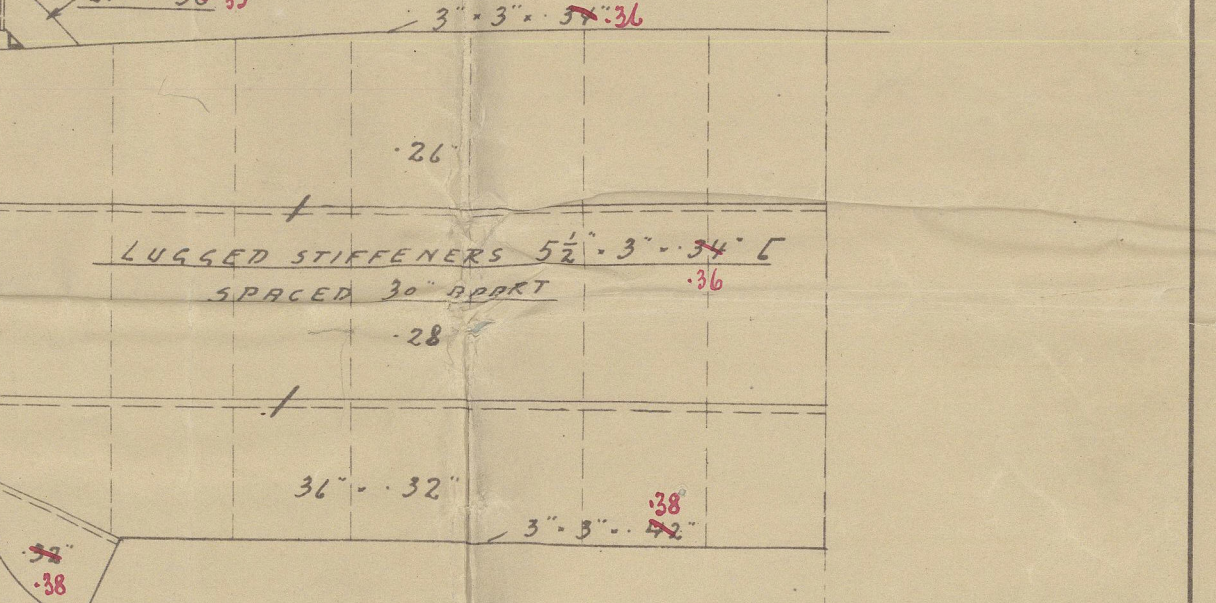 3" × 3" × ·34" ·36
·26"
LUGGED STIFFENERS 5½" × 3" × ·34" [
·36
SPACED 30" APART
·28
36" × ·32"
·38
3" × 3" × ·42"
·32"
·38